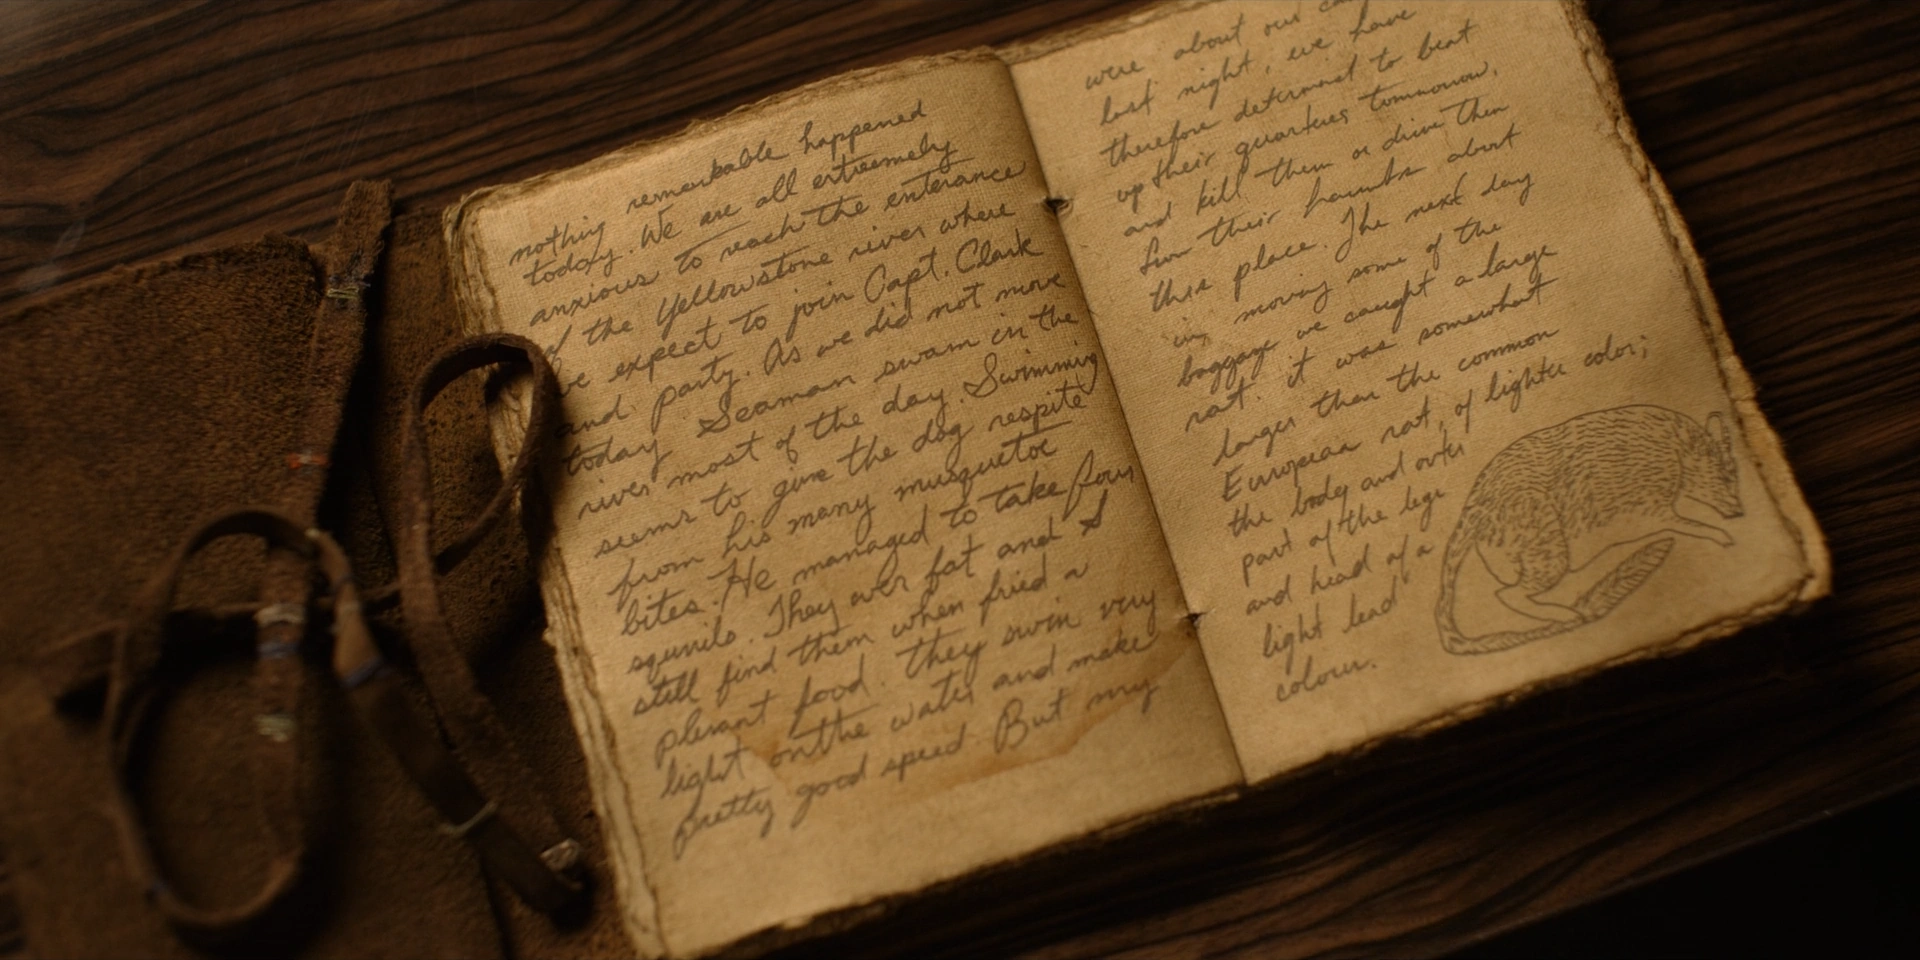 nothing remarkable happened
today. We are all extremely
anxious to reach the enterance
of the Yellowstone river where
we expect to join Capt. Clark
and party. As we did not move
today Seaman swam in the
river most of the day. Swimming
seems to give the dog respite
from his many musquetoe
bites. He managed to take four
squirils. They over fat and I
still find them when fried a
plesant food. they swim very
light onthe water and make
pretty good speed But my
were about our
last night, we have
therefore determined to beat
up their quarters tomorrow,
and kill them or drive them
from their haunts about
this place. The next day
in moving some of the
baggage we caught a large
rat. it was somewhat
larger than the common
European rat, of lighter color;
the body and outer
part of the legs
and head of a
light lead
colour.